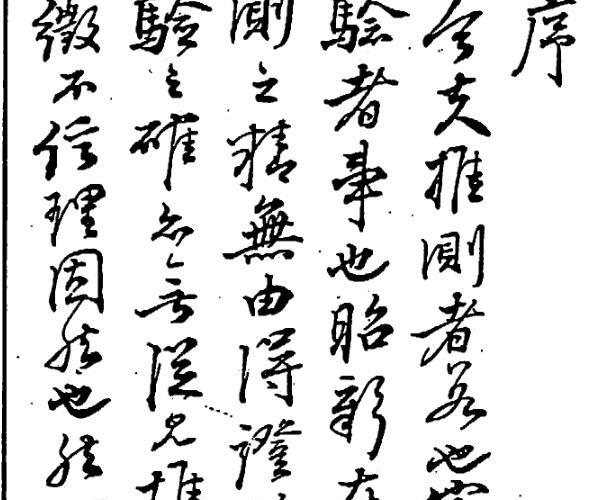 序
今夫推測者也
驗者事也昭
測之精無由得證
驗之確亦無從見推
徵不信理固然也然